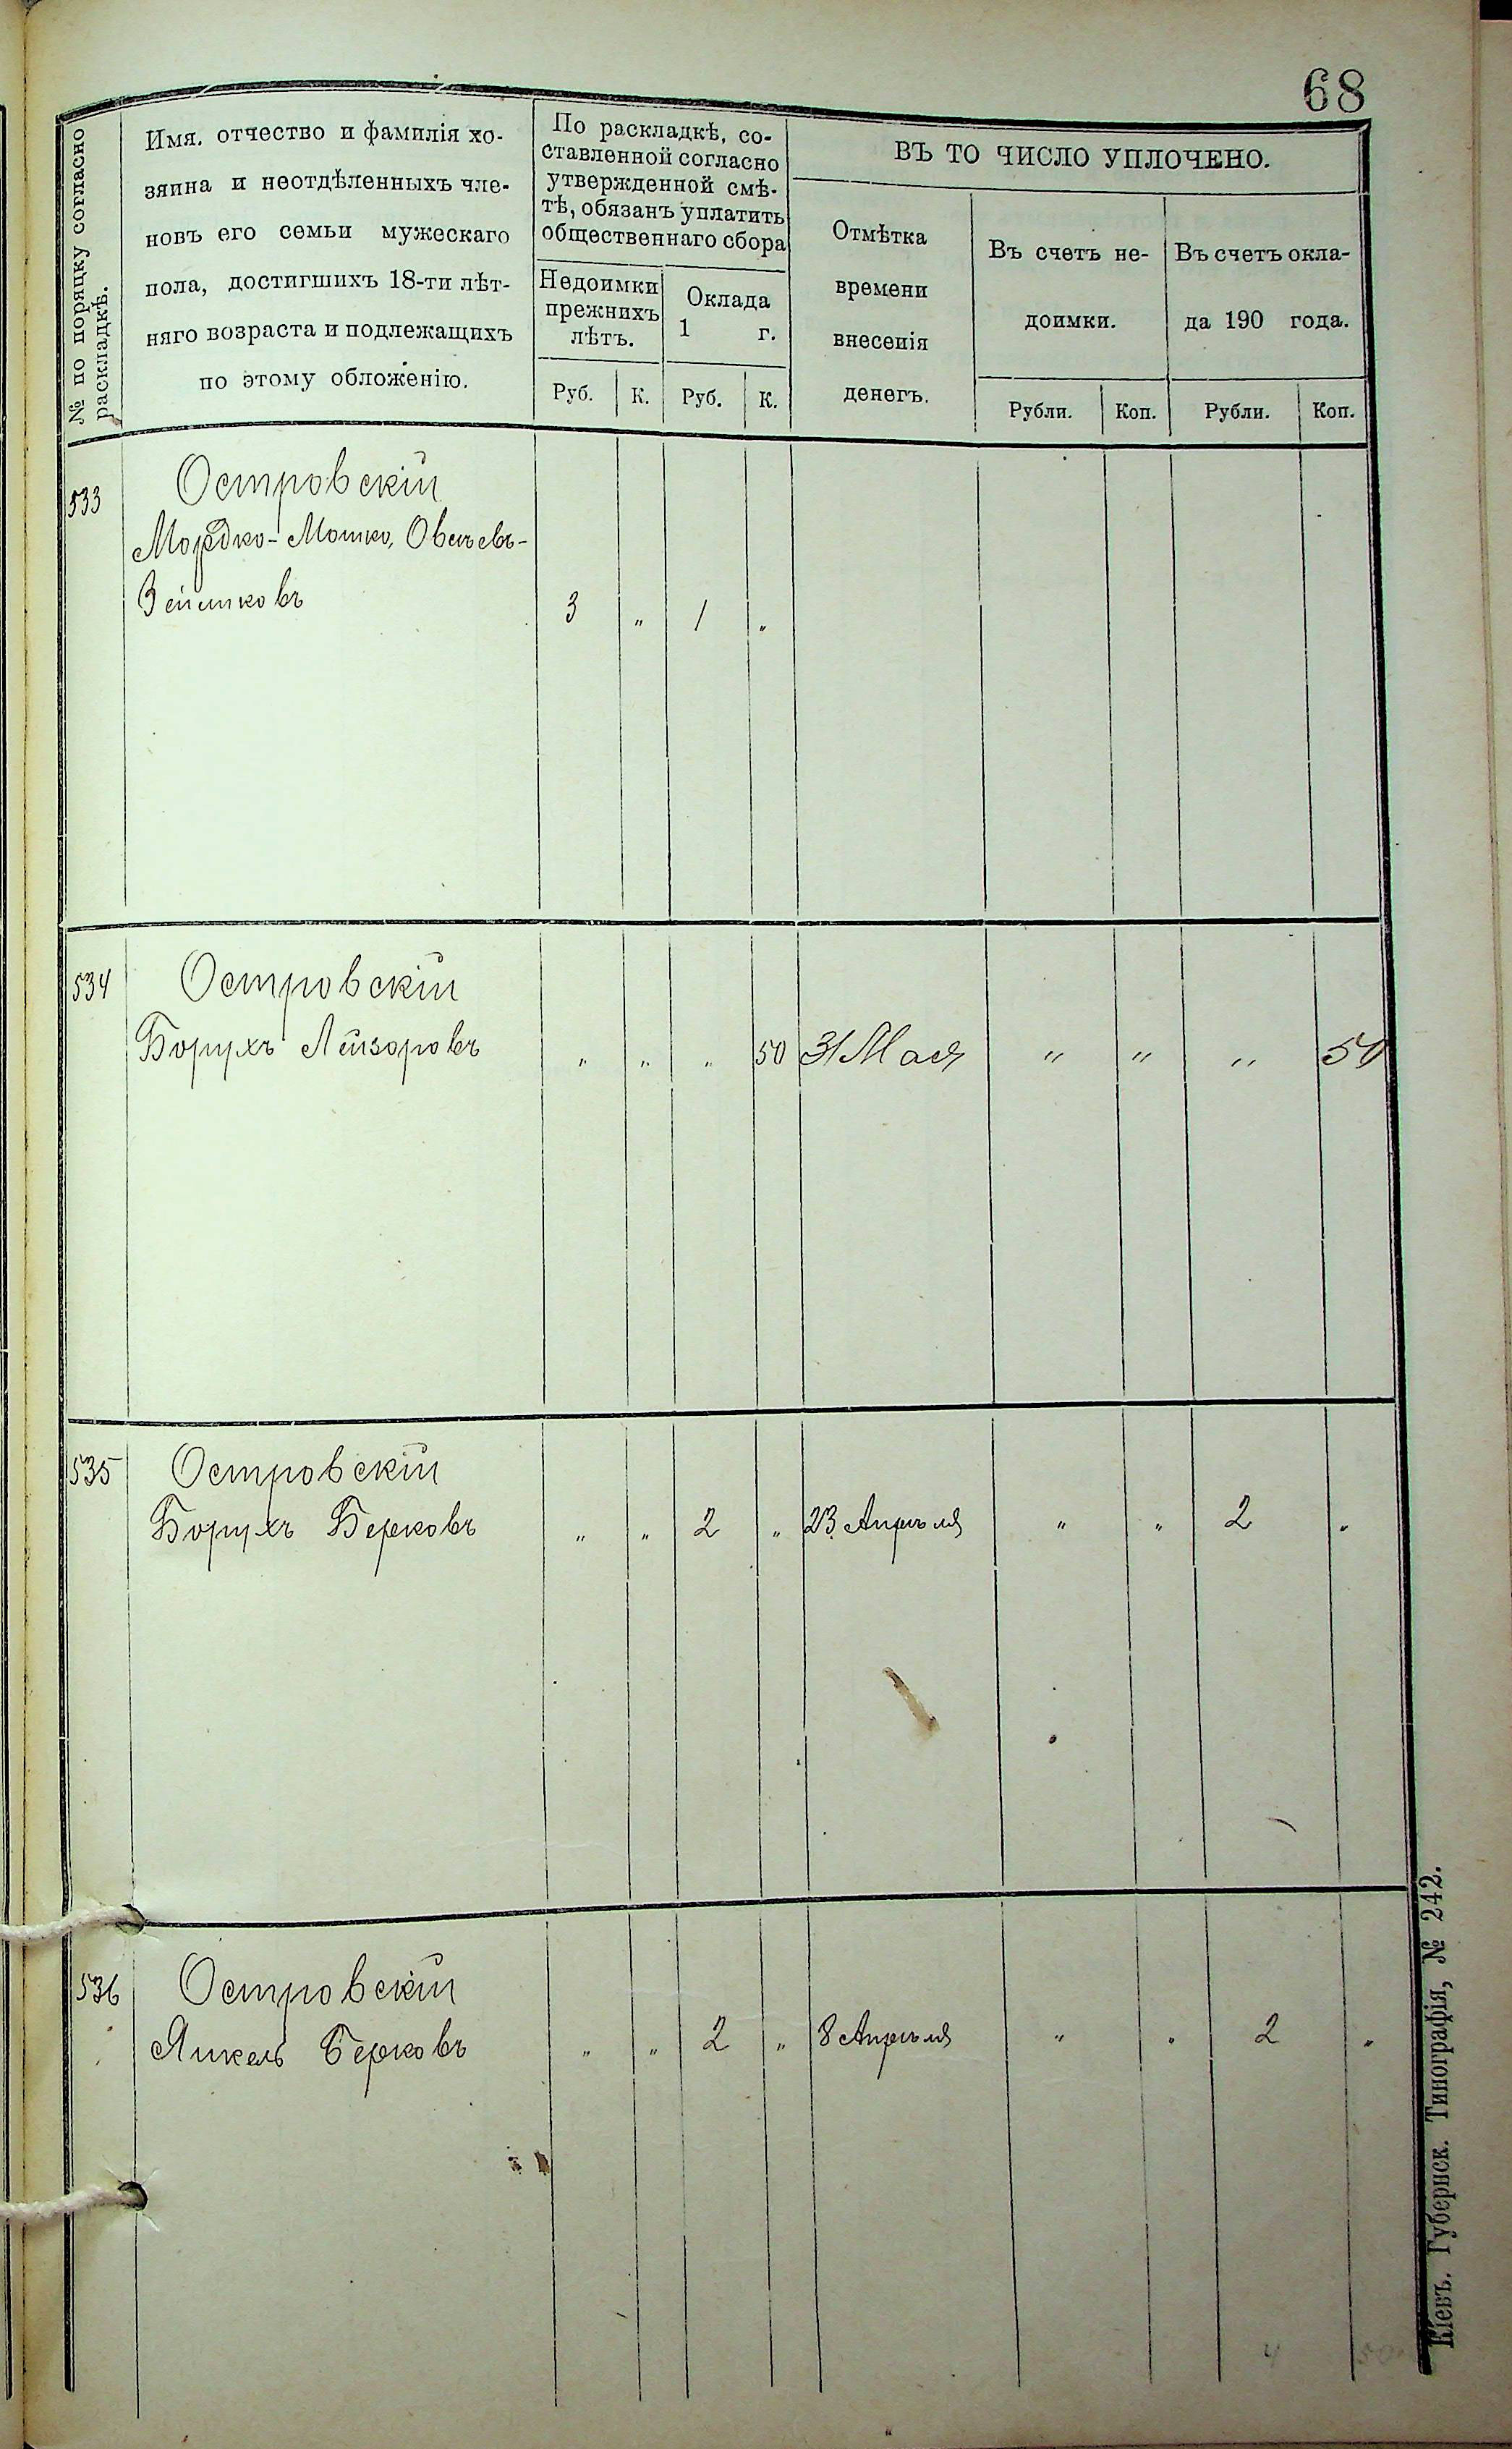 68
№ по порядку согласно
раскладкѣ.
Имя, отчество и фамилія хо-
зяина и неотдѣленныхъ чле-
новъ его семьи мужескаго
пола, достигшихъ 18-ти лѣт-
няго возраста и подлежащихъ
по этому обложенію.
По раскладкѣ, со-
ставленной согласно
утвержденной смѣ-
тѣ, обязанъ уплатить
общественнаго сбора
Недоимки
прежнихъ
лѣтъ.
Оклада
1 г.
Руб. К. Руб. К.
ВЪ ТО ЧИСЛО УПЛОЧЕНО.
Отмѣтка
времени
внесенія
денегъ.
Въ счетъ не-
доимки.
Въ счетъ окла-
да 190 года.
Рубли. Коп. Рубли. Коп.
533 Островскій
Мордко-Мошко, Овсѣевъ-
Зейликовъ 3 „ 1 „
534 Островскій
Борухъ Лейзоровъ „ „ „ 50 31 Мая „ „ „ 50
535 Островскій
Борухъ Берковъ „ „ 2 „ 23 Апрѣля „ „ 2 „
536 Островскій
Янкель Берковъ „ „ 2 „ 8 Апрѣля „ „ 2 „
4 50
Кіевъ. Губернск. Типографія, № 242.